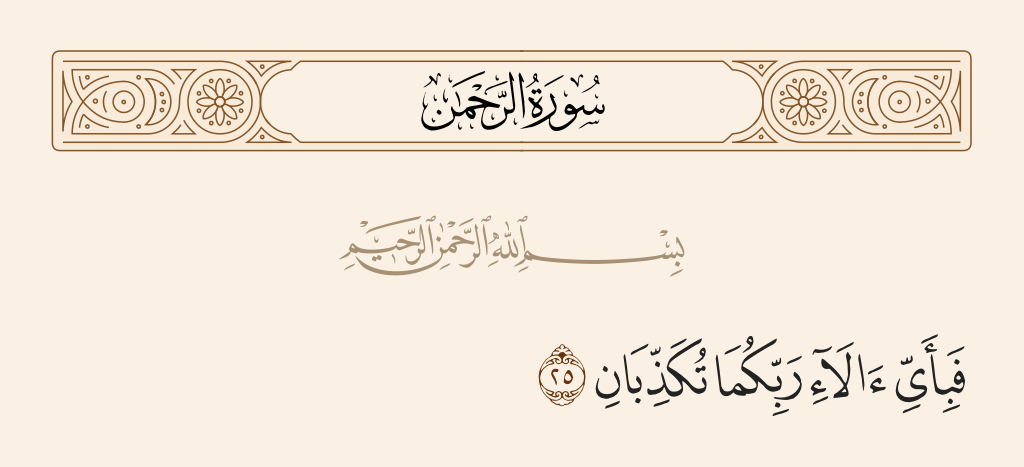 سُورَةُ الرَّحْمَٰن
بِسْمِ ٱللَّهِ ٱلرَّحْمَٰنِ ٱلرَّحِيمِ
فَبِأَيِّ ءَالَآءِ رَبِّكُمَا تُكَذِّبَانِ ٢٥